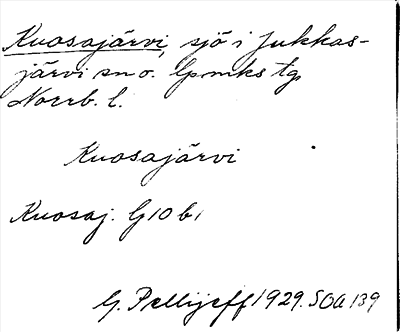 Kuosajärvi, sjö i Jukkas-
järvi sn o. lpmks tg,
Norrb. l.
Kuosajärvi
Kuosaj. G 10 b 1
G. Pellijeff 1929. SOA 139